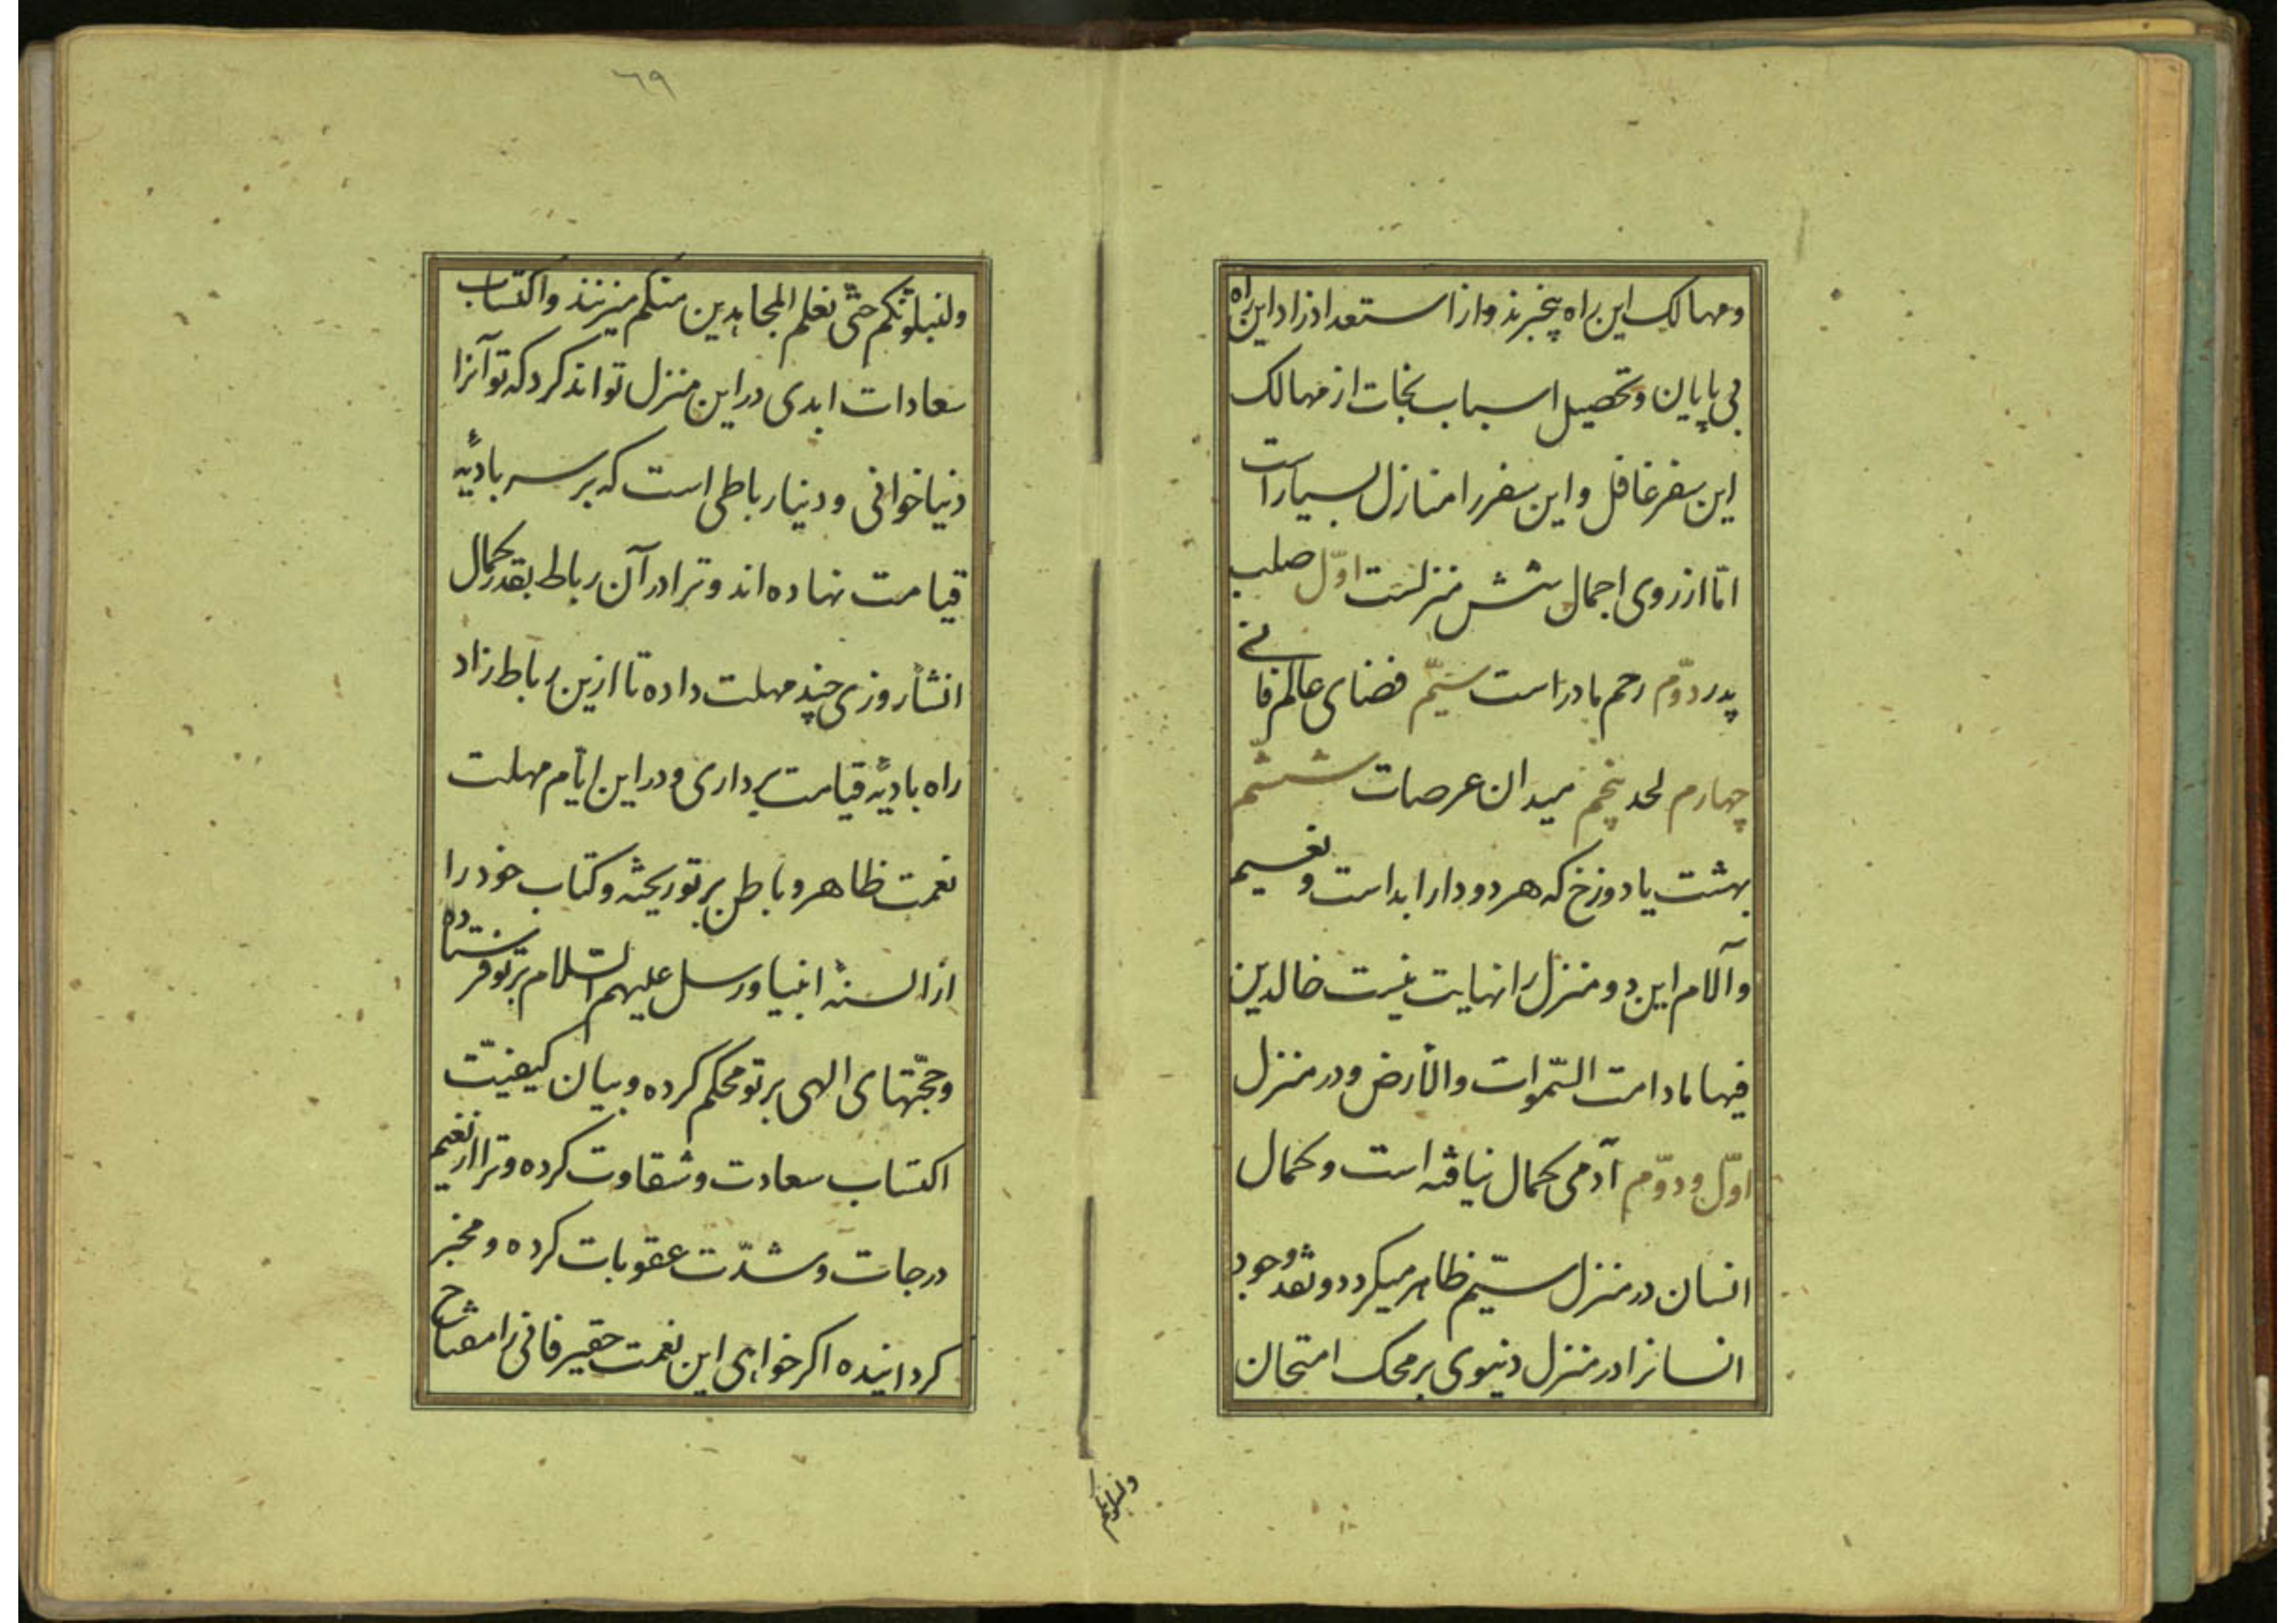 ومهالک این راه بیخبرند و از استعداد زاد این راه
بی پایان و تحصیل اسباب نجات از مهالک
این سفر غافل و این سفر را منازل بسیار است
امّا از روی اجمال شش منزلست اوّل صلب
پدر دوّم رحم مادر است سیّم فضای عالم فانی
چهارم لحد پنجم میدان عرصات ششم
بهشت یا دوزخ که هر دو دار ابد است و نعیم
و آلام این دو منزل را نهایت نیست خالدین
فیها مادامت السّموات والأرض و در منزل
اوّل و دوّم آدمی بکمال نیافته است و کمال
انسان در منزل سیّم ظاهر میکردد و نقد وجود
انسانرا در منزل دنیوی بر محک امتحان
ولنبلونکم
٦٩
ولنبلونّکم حتّی نعلم المجاهدین منکم میزنند و اکتساب
سعادات ابدی در این منزل تواند کرد که تو آنرا
دنیا خوانی و دنیا رباطی است که بر سر بادیهٔ
قیامت نهاده اند و ترا در آن رباط بقدر کمال
انشأ روزی چند مهلت داده تا ازین رباط زاد
راه بادیهٔ قیامت برداری و در این ایّام مهلت
نعمت ظاهر و باطن بر تو ریخته و کتاب خود را
از السنهٔ انبیا و رسل علیهم السّلام بر تو فرستاده
و حجّتهای الهی بر تو محکم کرده و بیان کیفیّت
اکتساب سعادت و شقاوت کرده و ترا از نعیم
درجات و شدّت عقوبات کرده و مخبر
کردانیده اکر خواهی این نعمت حقیر فانی را مفتاح